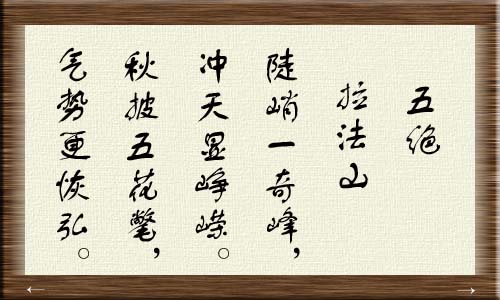 五绝
拉法山
陡峭一奇峰，
冲天显峥嵘。
秋披五花氅，
气势更恢弘。